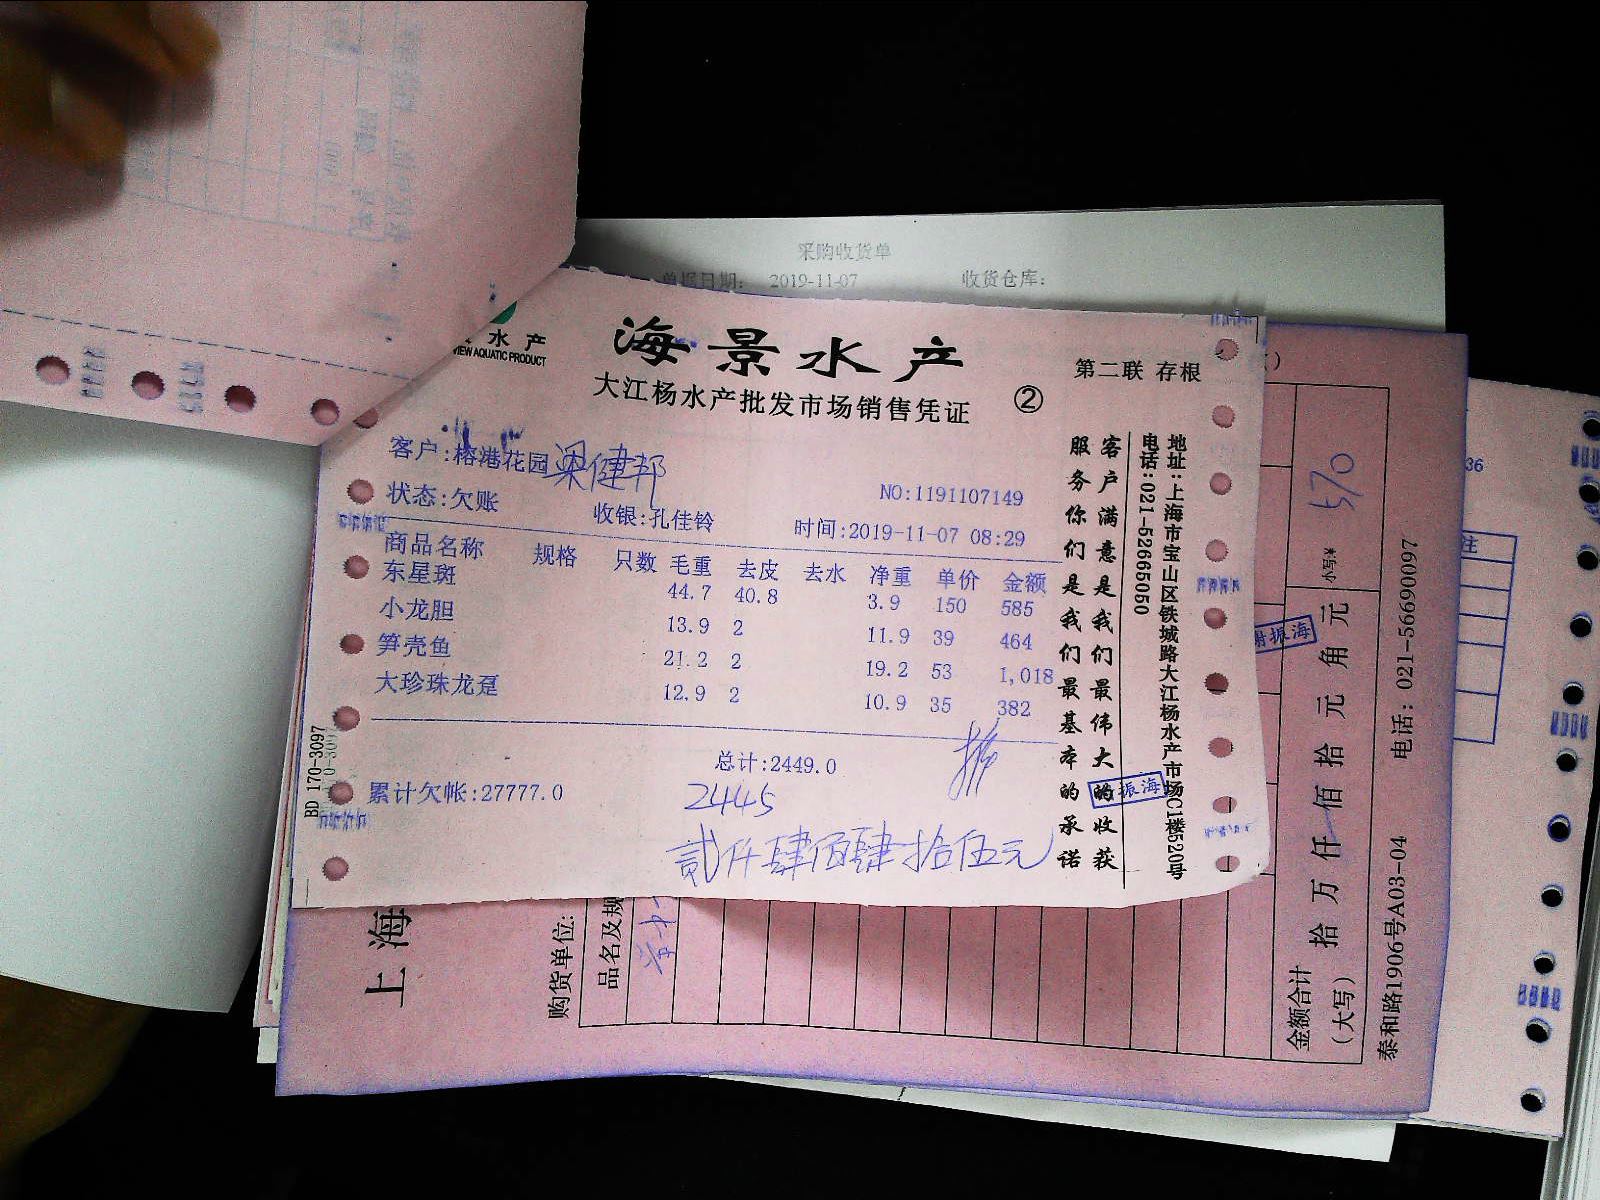 采购收货单
单据日期: 2019-11-07 收货仓库:
水产
VIEW AQUATIC PRODUCT
海景水产
大江杨水产批发市场销售凭证 ②
第二联 存根
客户:榕港花园 梁健邦
NO:1191107149
状态:欠账 收银:孔佳铃 时间:2019-11-07 08:29
商品名称 规格 只数 毛重 去皮 去水 净重 单价 金额
东星斑 44.7 40.8 3.9 150 585
小龙胆 13.9 2 11.9 39 464
笋壳鱼 21.2 2 19.2 53 1,018
大珍珠龙趸 12.9 2 10.9 35 382
总计:2449.0
累计欠帐:27777.0
2445
贰仟肆佰肆拾伍元
客户满意是我们最伟大的收获
服务你们是我们最基本的承诺
地址:上海市宝山区铁城路大江杨水产市场C1楼520号
电话:021-52665050
振海
BD 170-3097
上海
购货单位:
品名及规
金额合计
(大写) 拾万仟佰拾元角元
小写¥ 570
振海
泰和路1906号A03-04 电话: 021-56690097
注
36